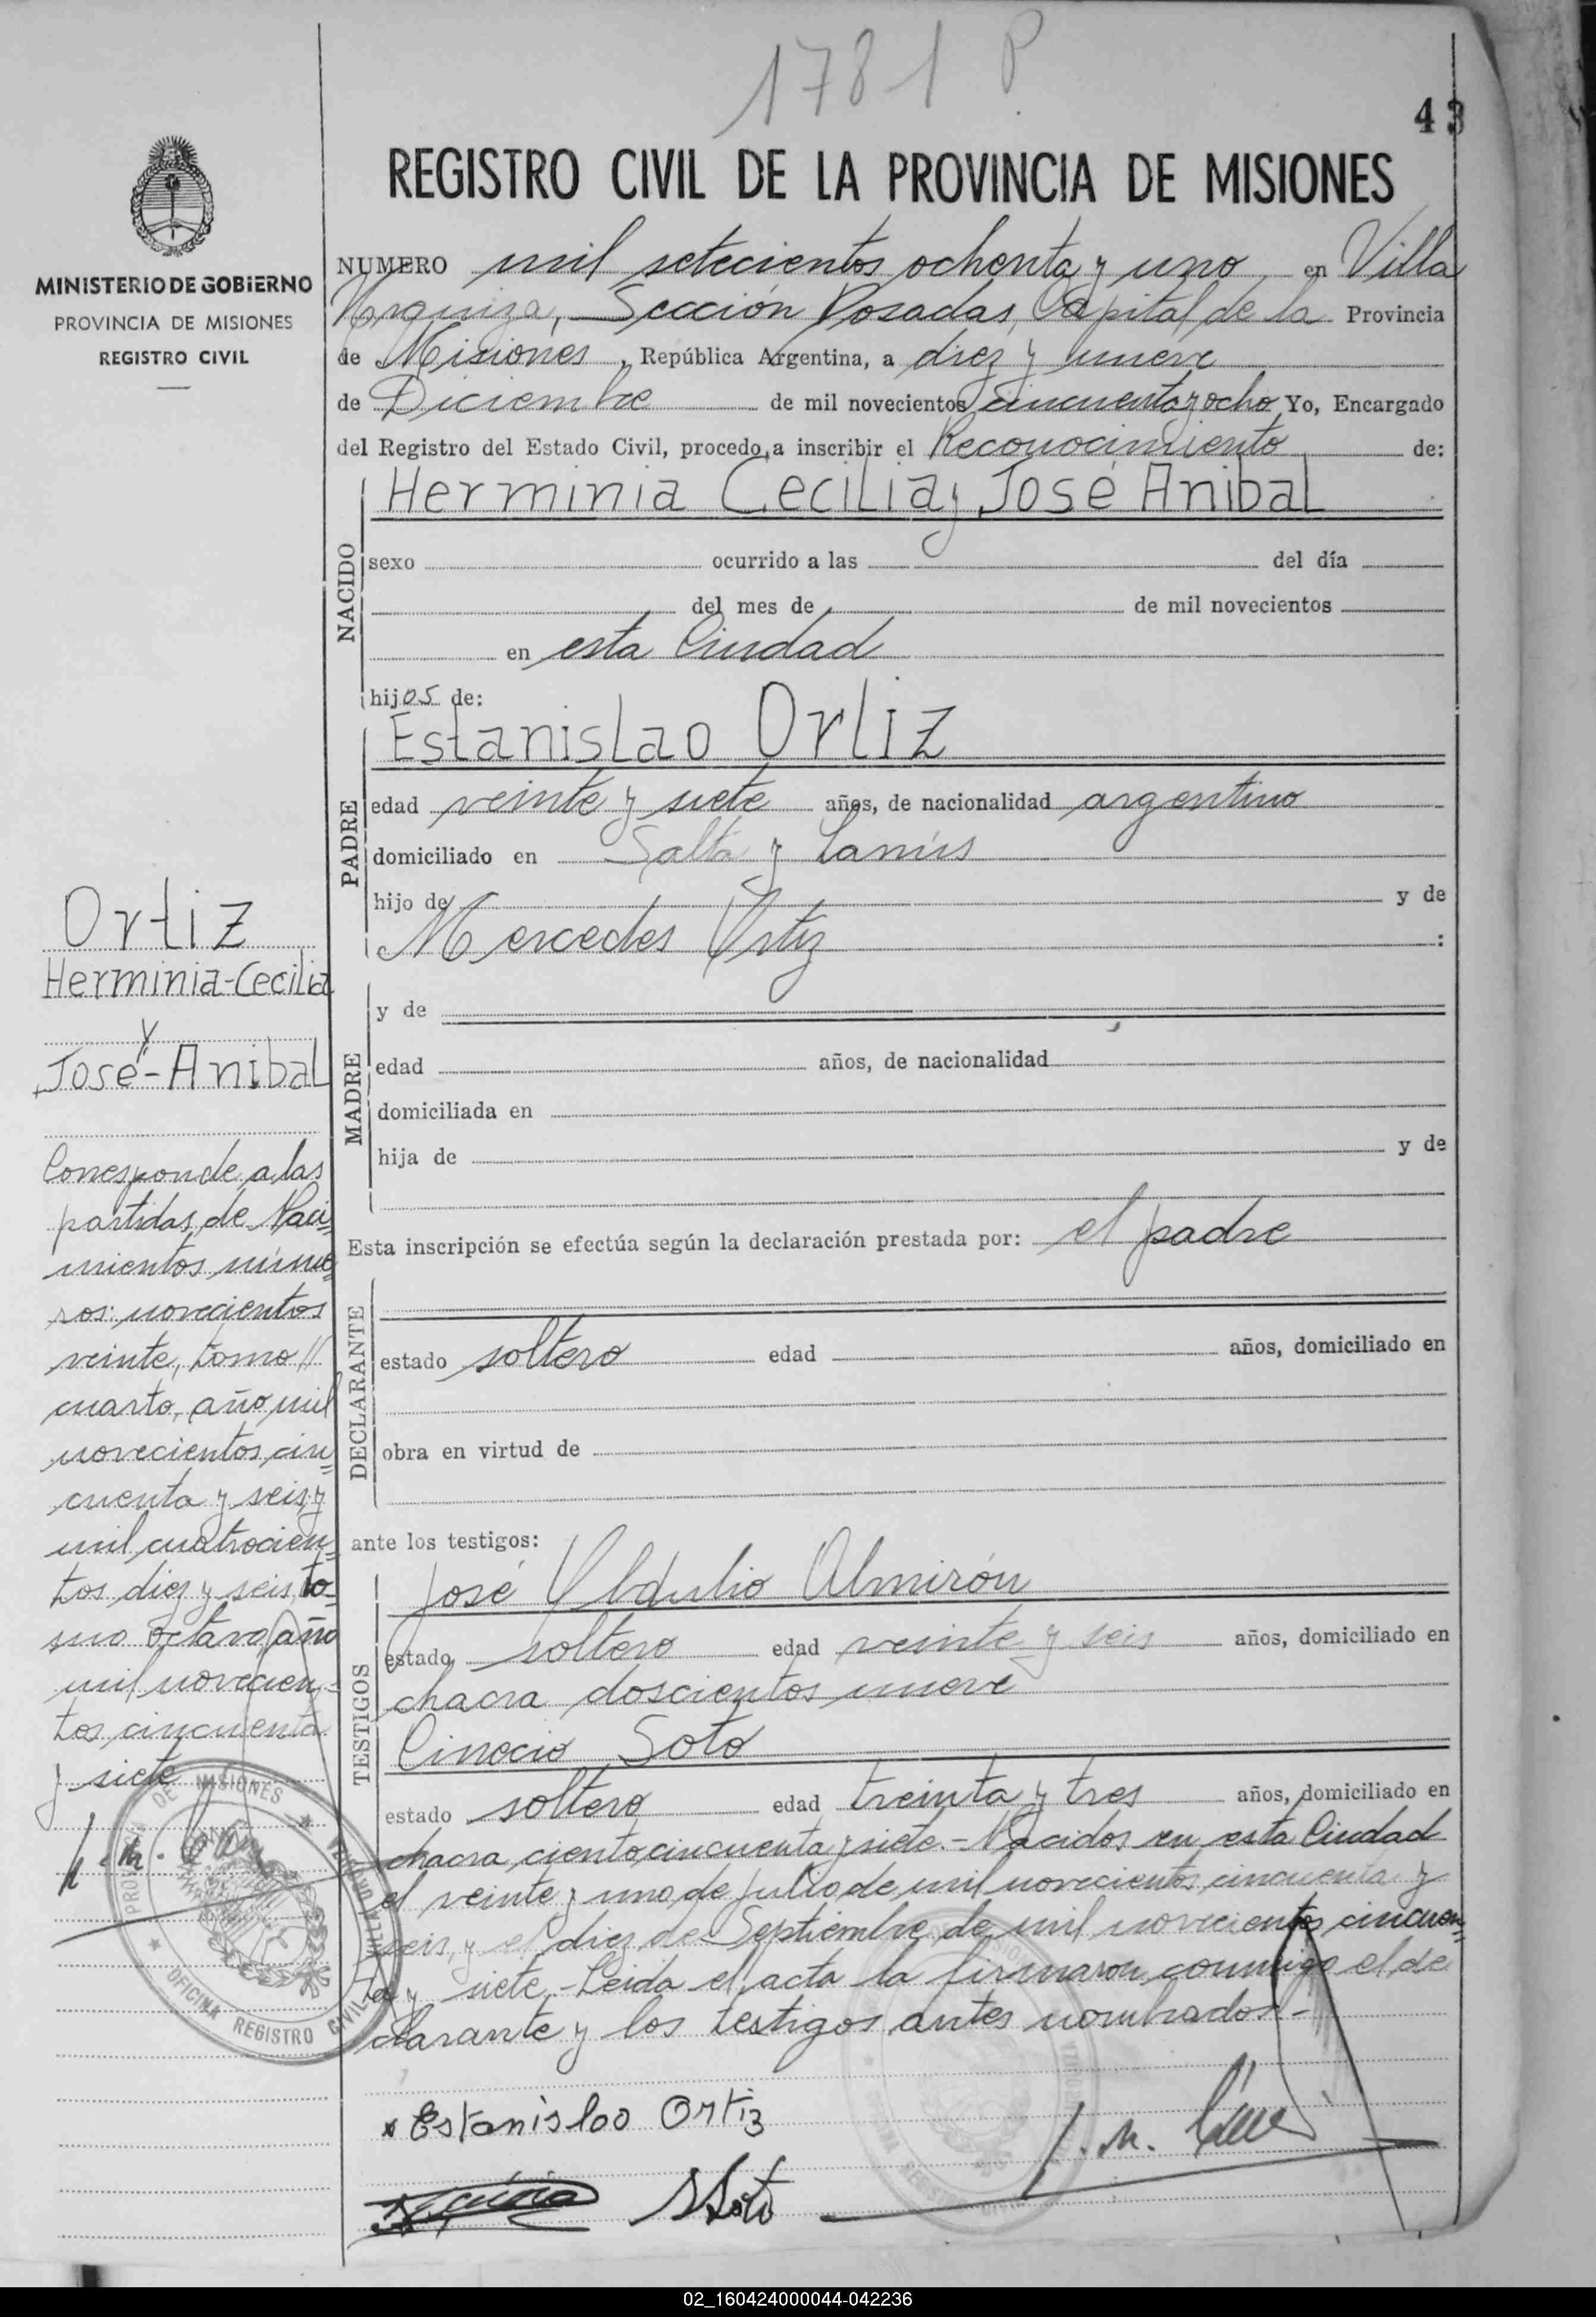 1781 P
43
REGISTRO CIVIL DE LA PROVINCIA DE MISIONES
MINISTERIO DE GOBIERNO
PROVINCIA DE MISIONES
REGISTRO CIVIL
NUMERO mil setecientos ochenta y uno en Villa
Urquiza, Sección Posadas, Capital de la Provincia
de Misiones, República Argentina, a diez y nueve
de Diciembre de mil novecientos cincuenta y ocho Yo, Encargado
del Registro del Estado Civil, procedo a inscribir el Reconocimiento de:
Herminia Cecilia y José Anibal
NACIDO
sexo ocurrido a las del día
del mes de de mil novecientos
en esta Ciudad
hijos de:
Estanislao Ortiz
PADRE
edad veinte y siete años, de nacionalidad argentino
domiciliado en Salta y Lanús
hijo de y de
Mercedes Ortiz :
MADRE
y de
edad años, de nacionalidad
domiciliada en
hija de y de
Esta inscripción se efectúa según la declaración prestada por: el padre
DECLARANTE
estado soltero edad años, domiciliado en
obra en virtud de
ante los testigos:
TESTIGOS
José Almirón
estado soltero edad veinte y seis años, domiciliado en
chacra doscientos nueve
Cinecio Soto
estado soltero edad treinta y tres años, domiciliado en
chacra ciento cincuenta y siete.- Nacidos en esta Ciudad
el veinte y uno de Julio de mil novecientos cincuenta y
seis, y el diez de Septiembre de mil novecientos cincuen=
ta y siete.- Leida el acta la firmaron conmigo el de
clarante y los testigos antes nombrados.-
Estanislao Ortiz
SSoto
Ortiz
Herminia-Cecilia
y
José-Anibal
Corresponde a las
partidas de Naci=
mientos núme=
ros: novecientos
veinte, tomo //
cuarto, año mil
novecientos cin=
cuenta y seis, y
mil cuatrocien=
tos diez y seis, to=
mo octavo, año
mil novecien=
tos cincuenta
y siete
OFICINA REGISTRO CIVIL
PROVINCIA DE MISIONES
02_160424000044-042236